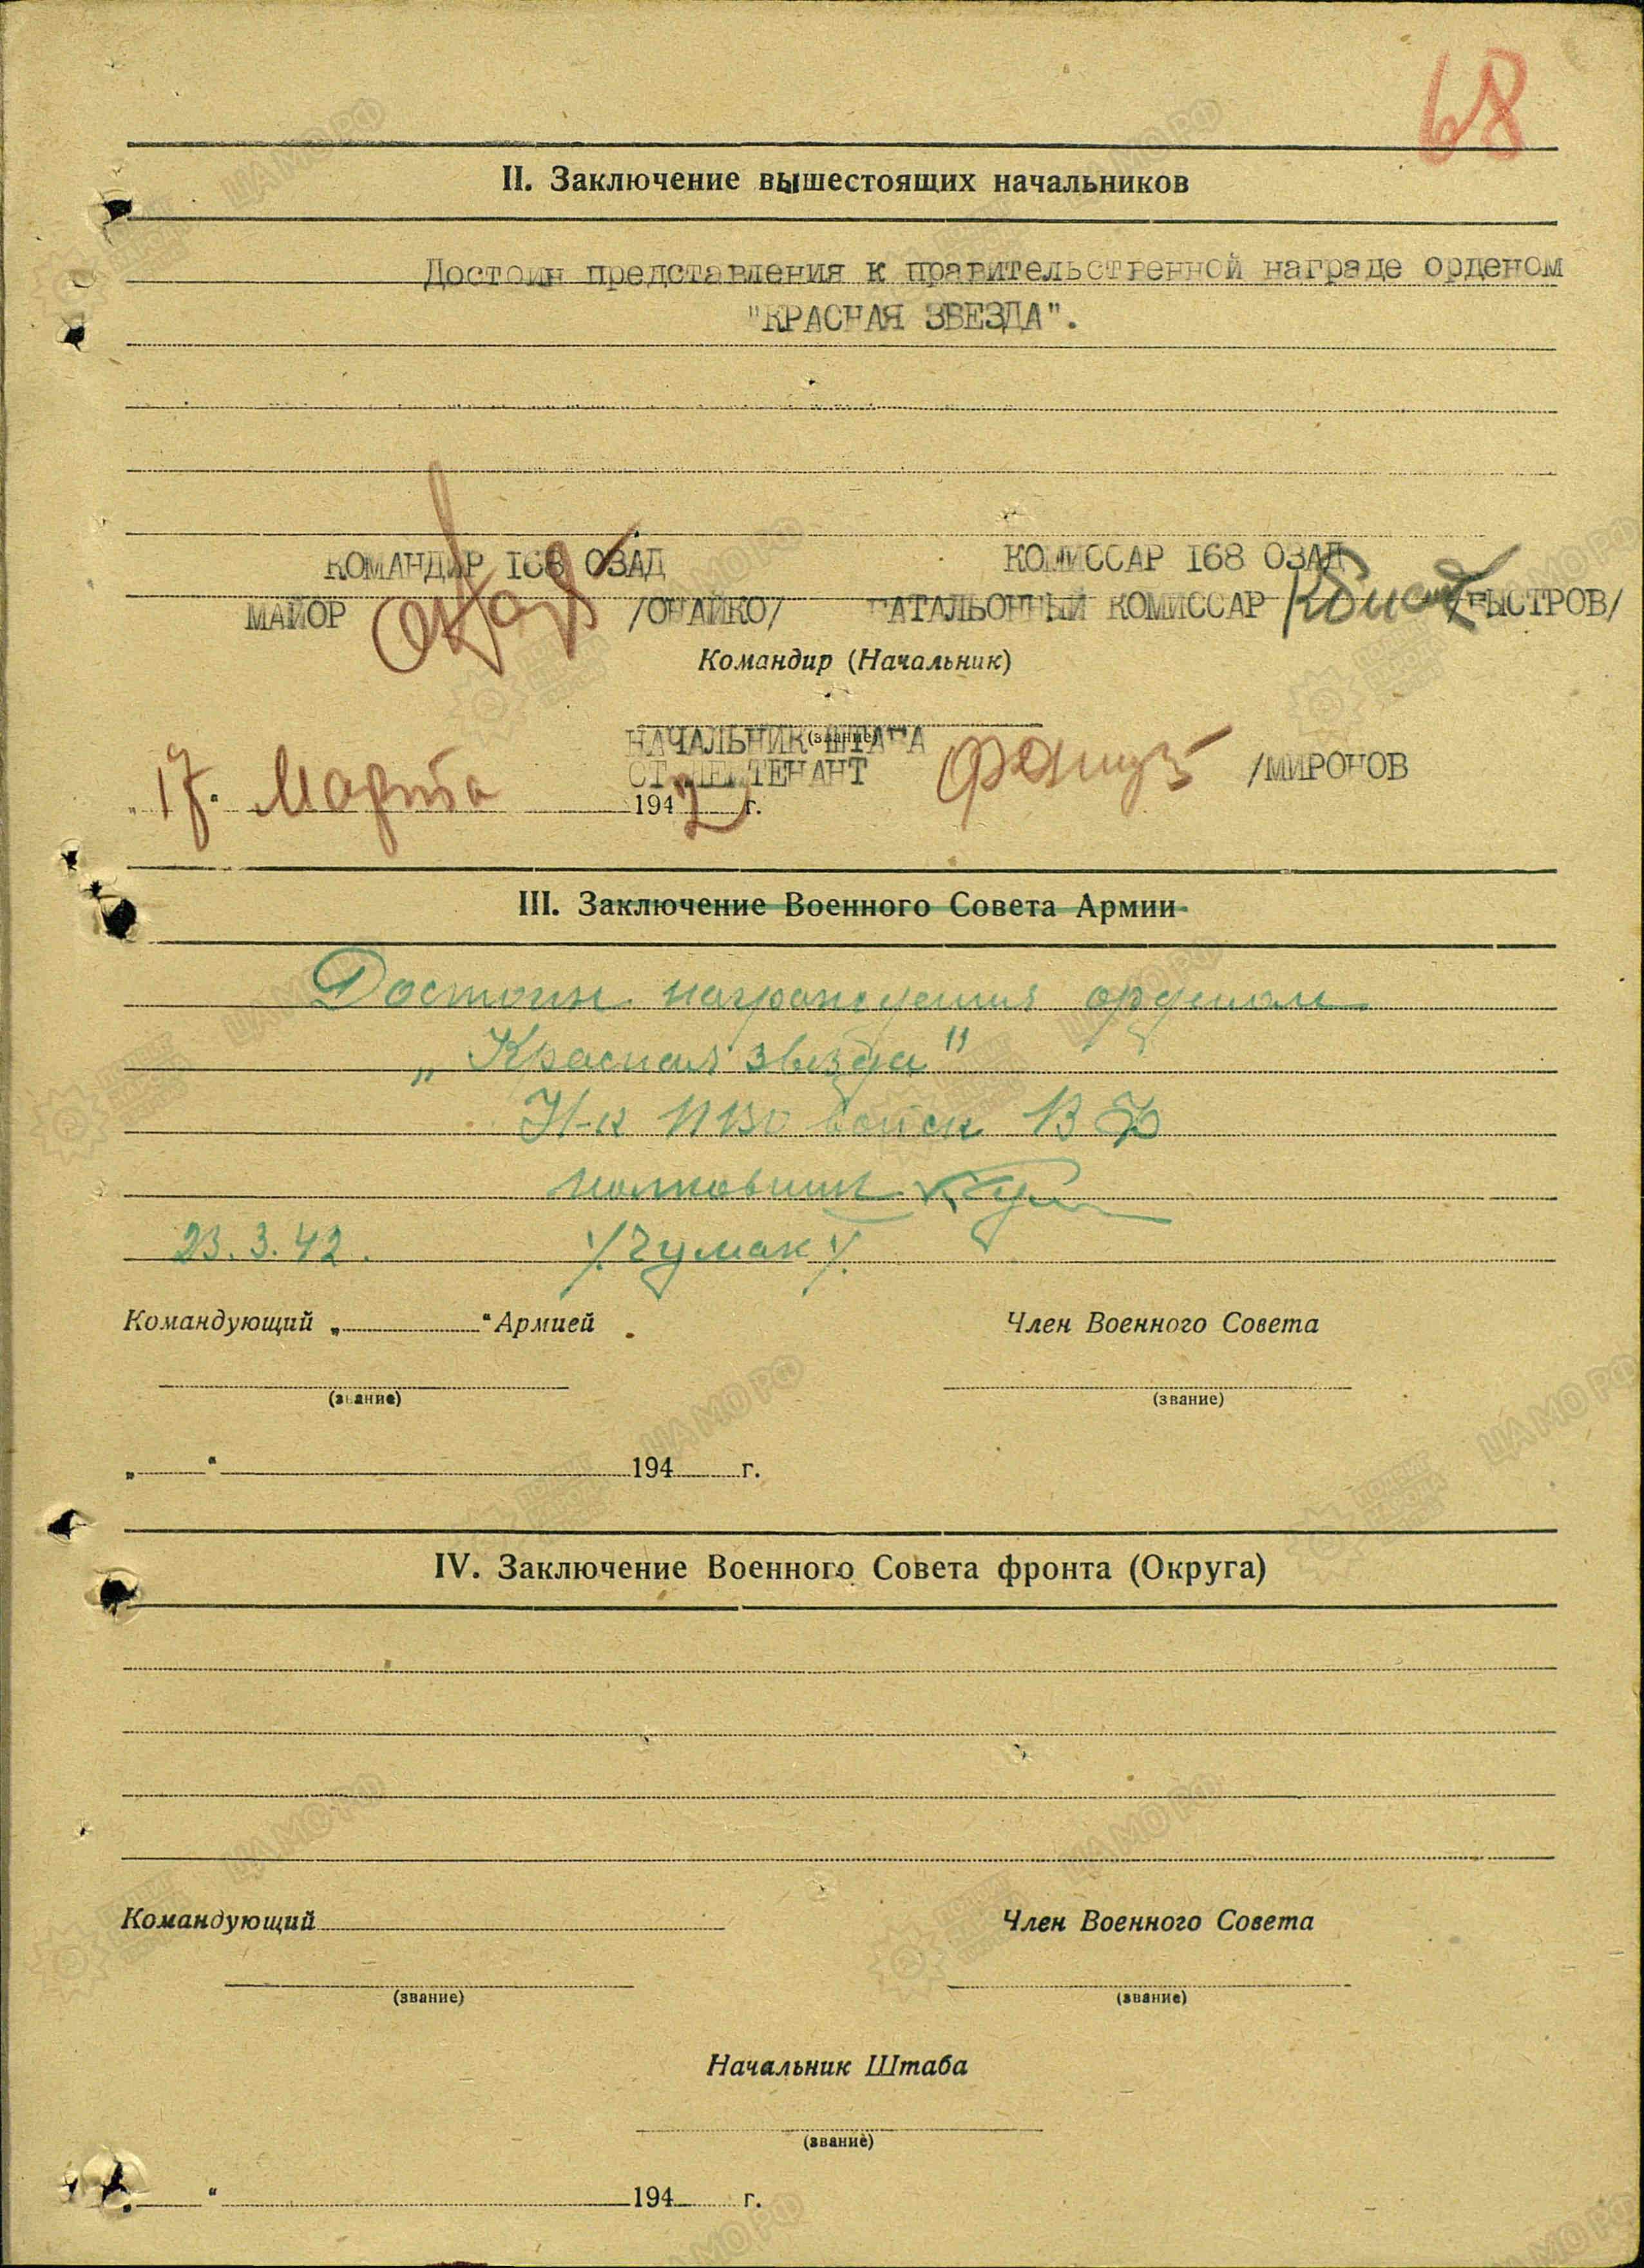 68
II. Заключение вышестоящих начальников
Достоин представления к правительственной награде орденом
"КРАСНАЯ ЗВЕЗДА".
КОМАНДИР I68 ОЗАД КОМИССАР I68 ОЗАД
МАЙОР /ОНАЙКО/ БАТАЛЬОННЫЙ КОМИССАР /БЫСТРОВ/
Командир (Начальник)
(звание)
НАЧАЛЬНИК ШТАБА
СТ. ЛЕЙТЕНАНТ /МИРОНОВ
„17“ Марта 1942 г.
III. Заключение Военного Совета Армии
Достоин награждения орденом
„Красная звезда"
Н-к ПВО войск ВФ
полковник
23.3.42. /Чумак/
Командующий „ “ Армией Член Военного Совета
(звание) (звание)
„ “ 194 г.
IV. Заключение Военного Совета фронта (Округа)
Командующий Член Военного Совета
(звание) (звание)
Начальник Штаба
(звание)
„ “ 194 г.
ЦАМО РФ
ПОДВИГ НАРОДА